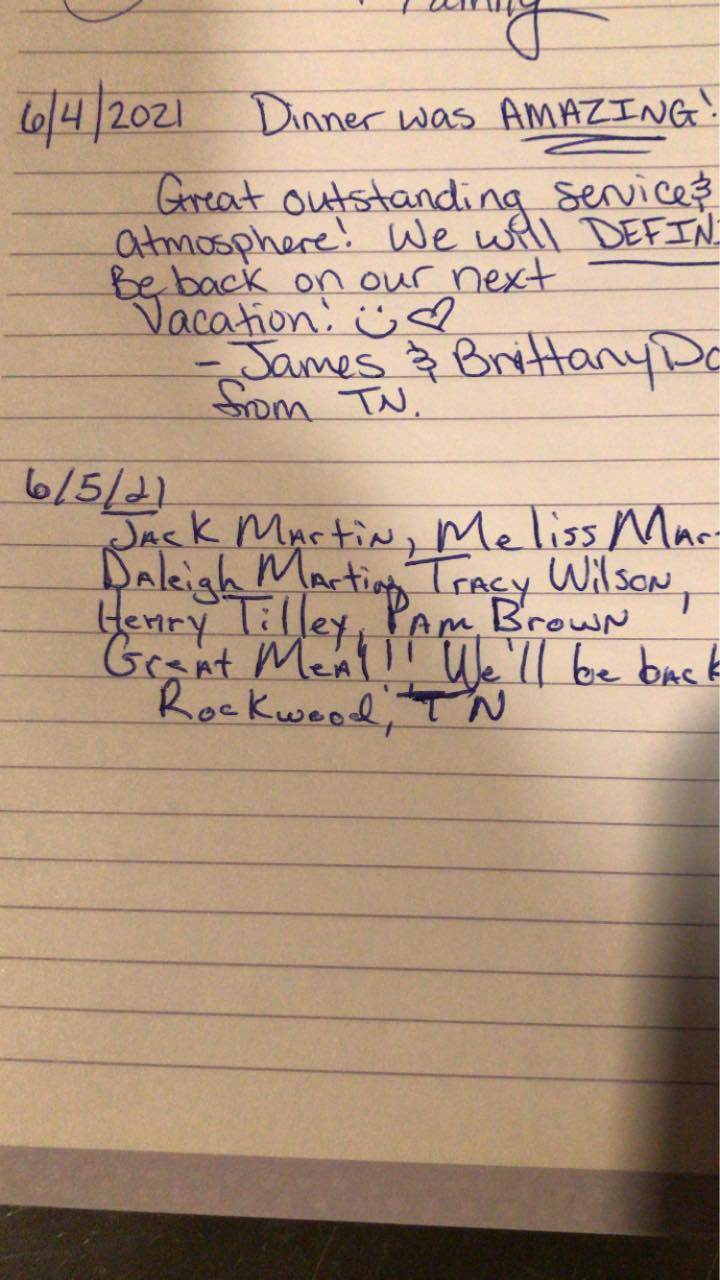 Family
6/4/2021 Dinner was AMAZING!
Great outstanding service &
atmosphere! We will DEFIN
Be back on our next
Vacation!
- James & Brittany Do
from TN.
6/5/21
Jack Martin, Meliss Mar
Daleigh Martin, Tracy Wilson,
Henry Tilley, Pam Brown
Great Meal!! We'll be back
Rockwood, TN